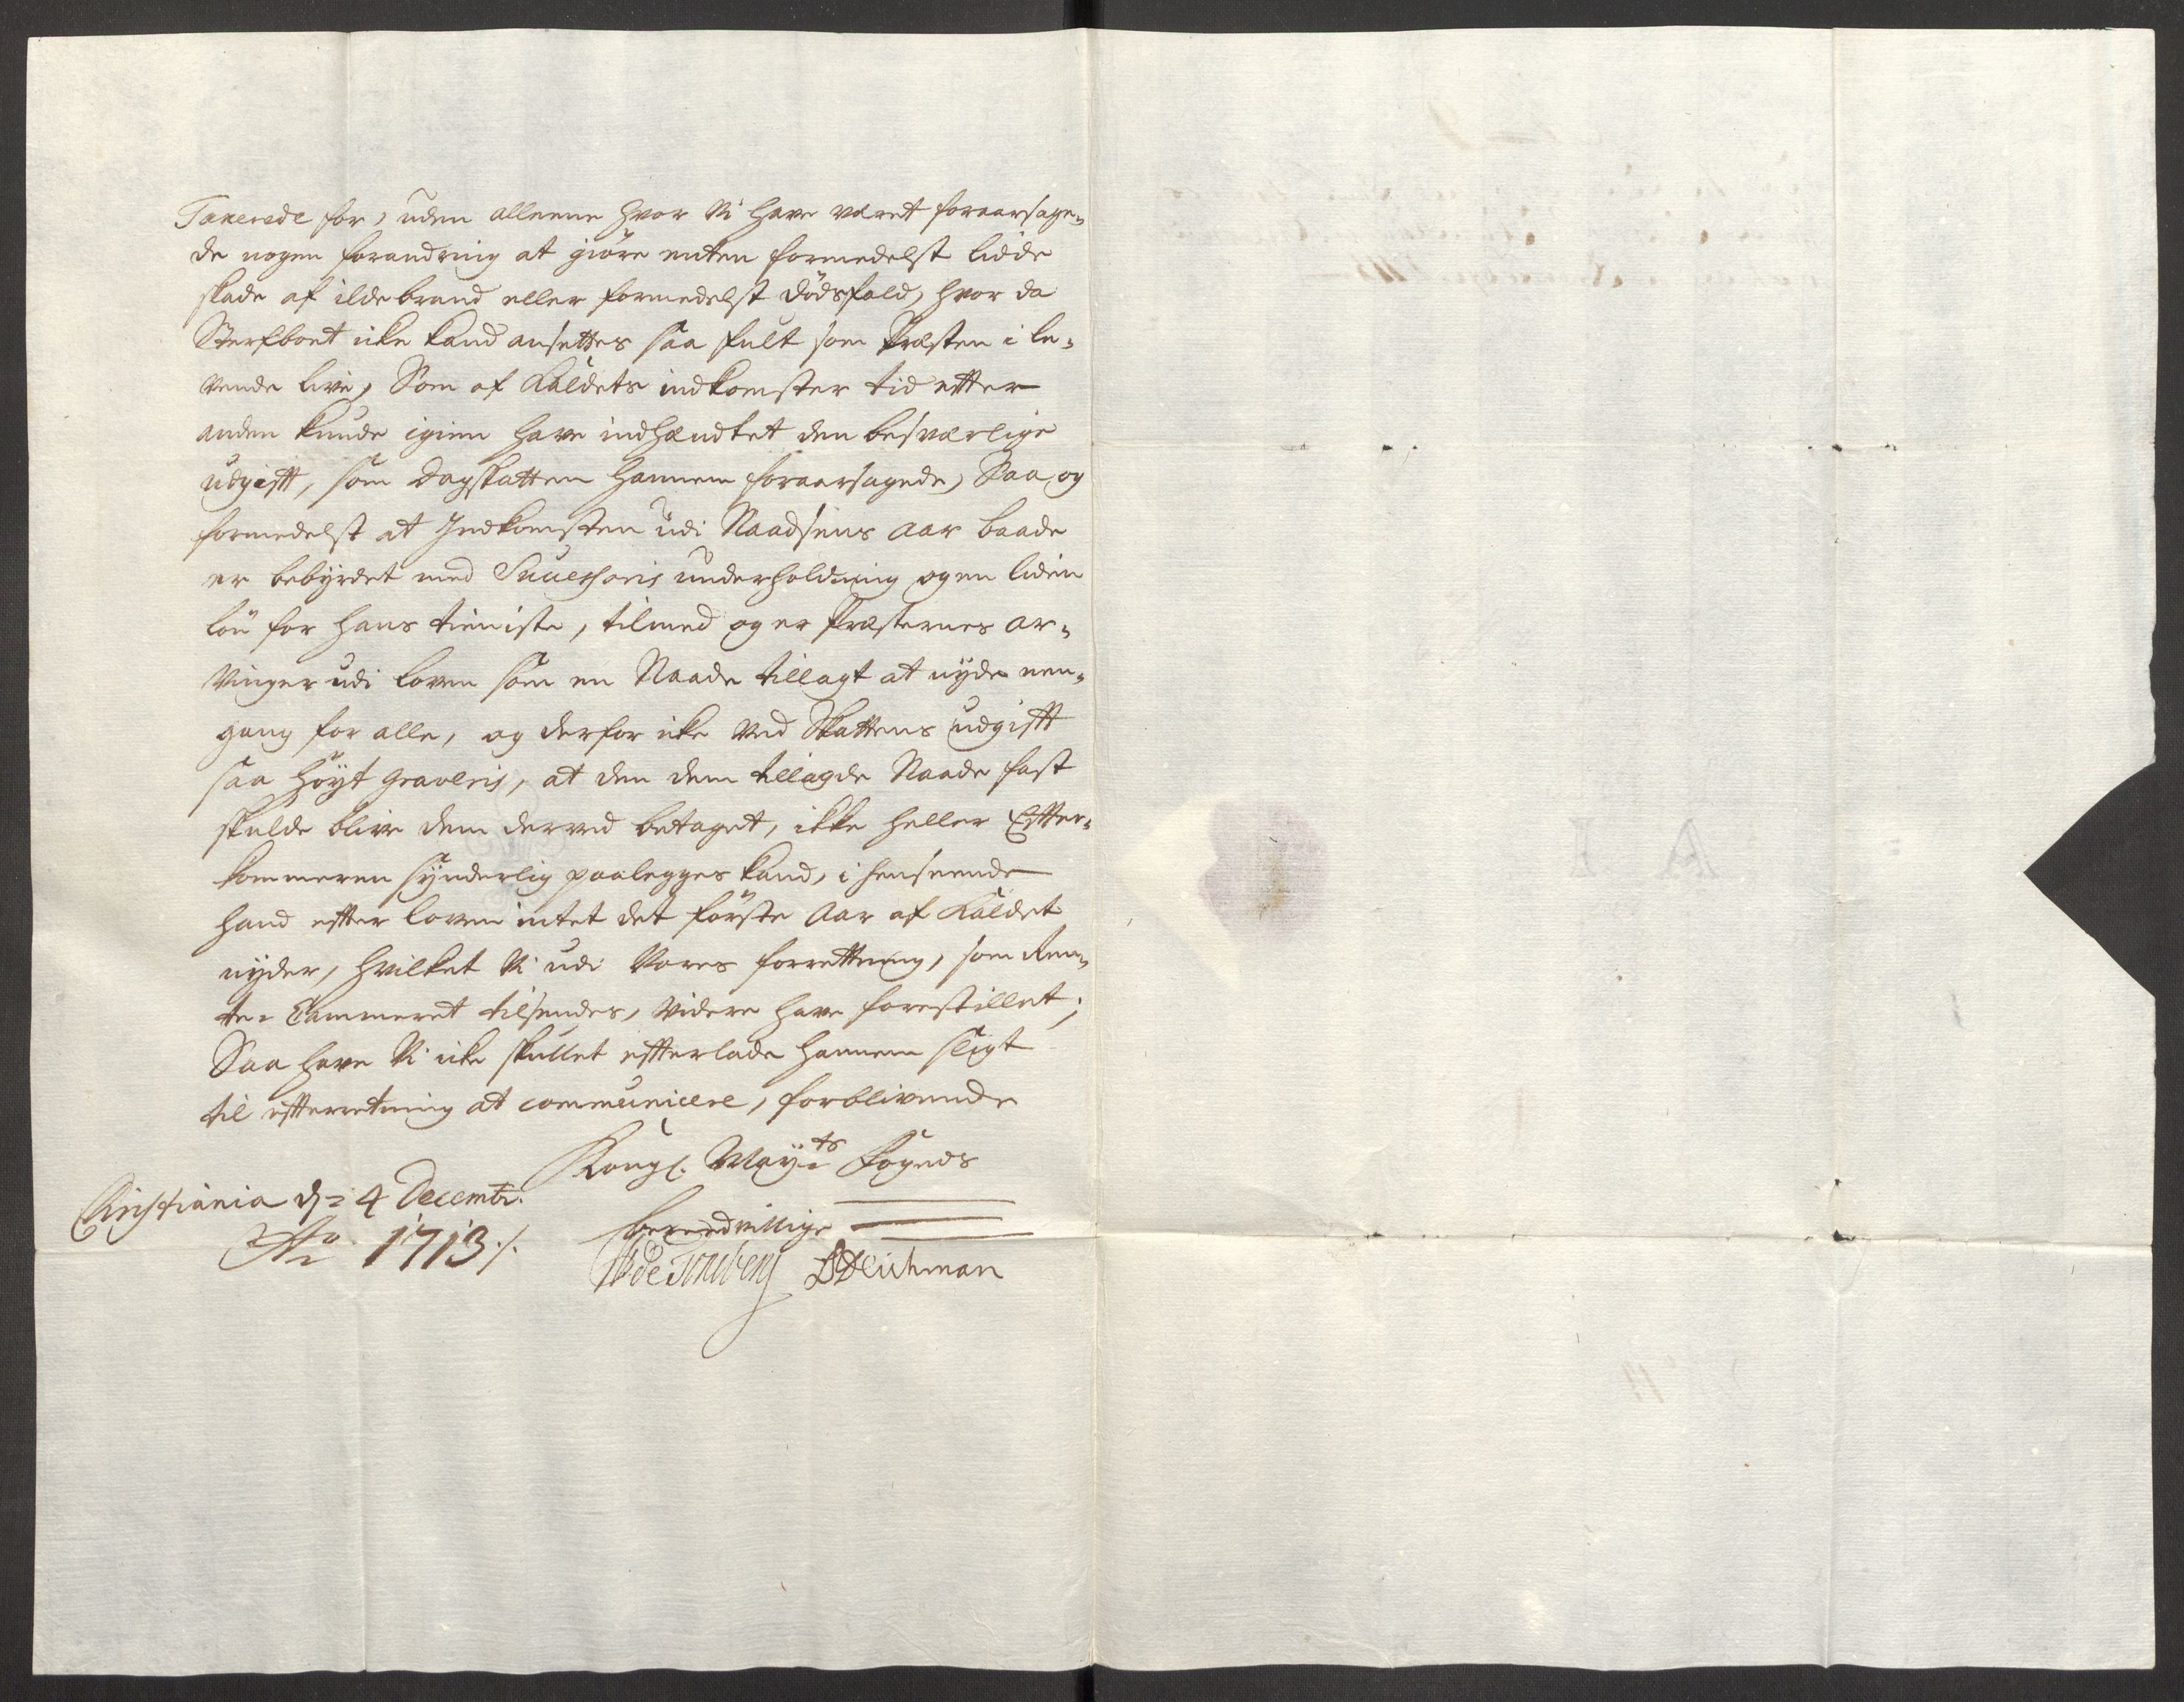 Taxerede for, uden alleene hvor Vi have været foraarsage-
de nogen forandring at giöre enten formedelst lidde
skade af ildebrand eller formedelst dödsfald, hvor da
Sterfboet icke kand ansettes saa fult som Præsten i le-
vende live, Som af Kaldets indkomster tid efter
anden kunde igien have indhændtet den besværlige
udgifft, som Dagskatten hannem foraarsagede, Saa og
formedelst at Indkomsten udi Naadsens aar baade
er bebyrdet med Successoris underholdning og en liden
lön for hans tieniste, tilmed og er Præsternes Ar-
vinger udi loven som en Naade tillagt at nyde een-
gang for alle, og derfor icke ved Skattens udgifft
saa höyt graveris, at den dem tillagde Naade fast
skulde blive dem derved betaget, ikke heller Effter-
kommeren synderlig paalegges kand, i henseende
hand effter loven intet det förste Aar af Kaldet
nyder, hvilket Vi udi Vores forrettning, som Ren-
te-Cammeret tilsendes, videre have forestillet;
Saa have Vi icke skullet effterlade hannem sligt
til effterretning at communicere, forblivende
Kongl. May:ts Fogeds
Christiania d: 4 Decembr.
Ao 1713 ./.
beredvillige
WdeTonsberg BDeichman